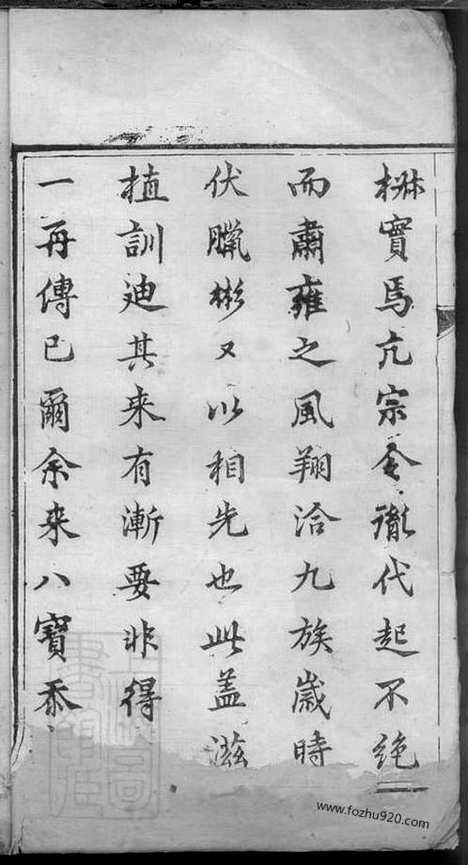 楙實為亢宗令嶶代起不絶
而肅雍之風翔洽九族歲時
伏臘彬ヌ以相先也此蓋滋
植訓迪其来有漸要非得
一再傳已爾余来八寶忝
www.fozhu920.com